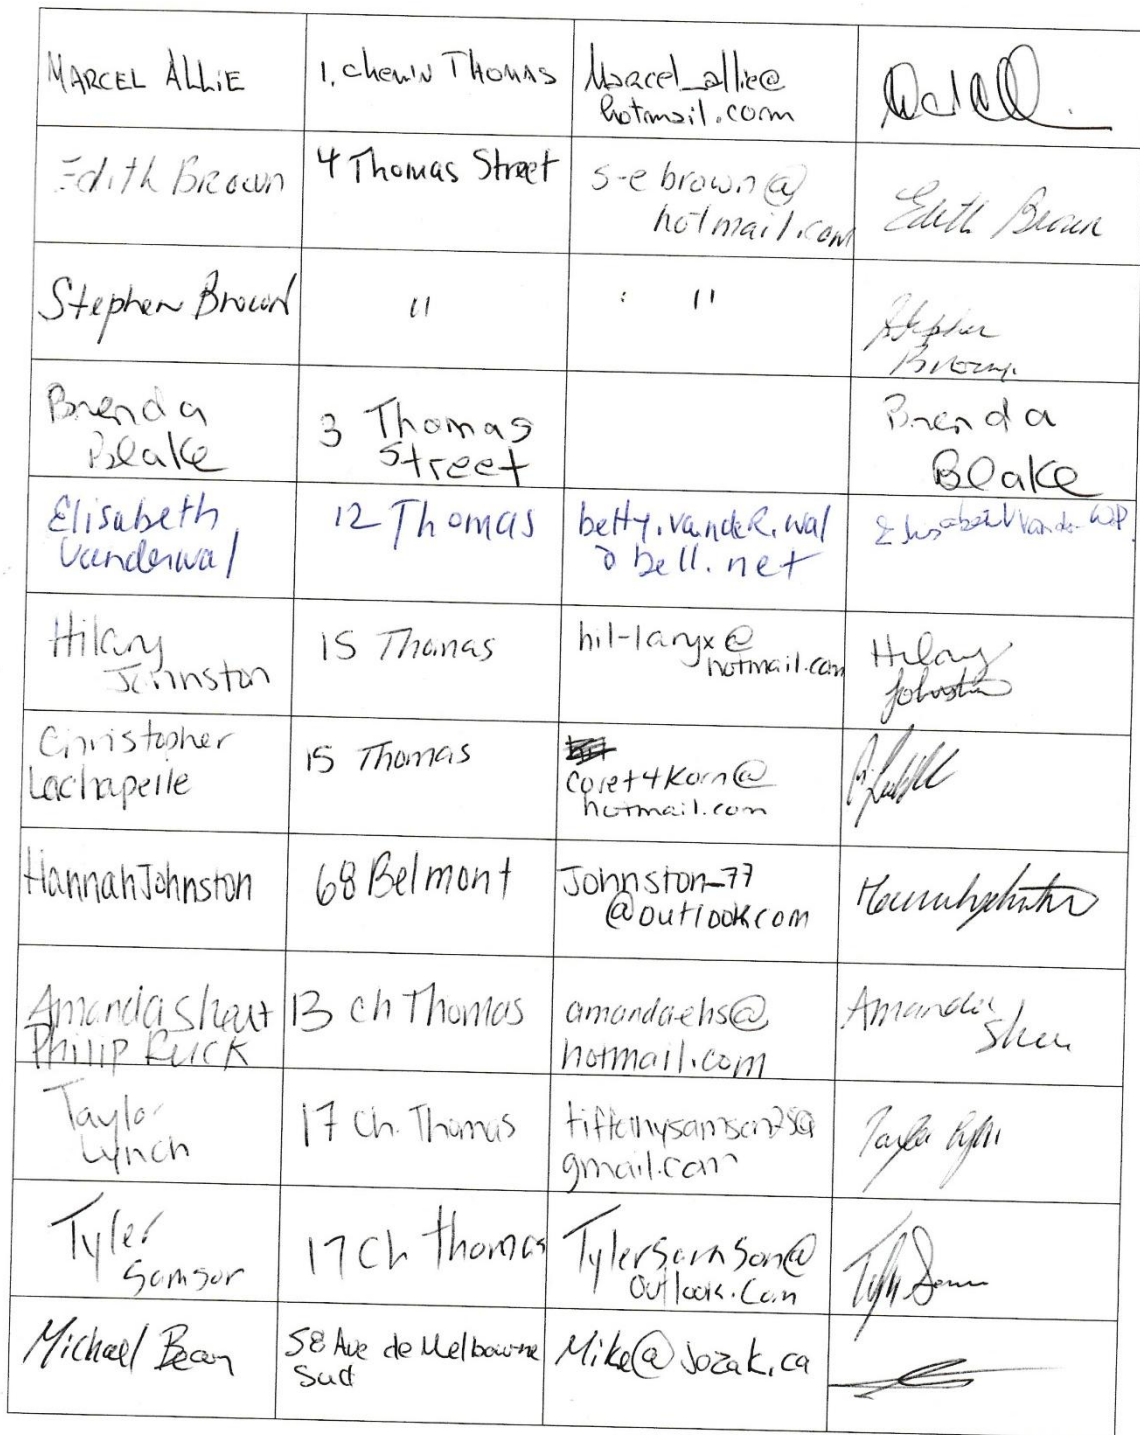 MARCEL ALLIE
1, chemin THOMAS
Marcel_allie@
hotmail.com
Edith Brown
4 Thomas Street
s-e brown@
hotmail.com
Edith Brown
Stephen Brown
"
"
Stephen
Brown
Brenda
Blake
3 Thomas
Street
Brenda
Blake
Elisabeth
Vanderwal
12 Thomas
betty.vander.wal
@ bell.net
Elisabeth Vander Wal
Hilary
Johnston
15 Thomas
hil-laryx@
hotmail.com
Hilary
Johnston
Christopher
Lachapelle
15 Thomas
coret4korn@
hotmail.com
Hannah Johnston
68 Belmont
Johnston_77
@outlook.com
Amanda
Philip
13 ch Thomas
amandaehs@
hotmail.com
Amanda
Taylor
Lynch
17 Ch. Thomas
tiffanysamson25@
gmail.com
Tyler
Samson
17 Ch Thomas
Tylersamson@
outlook.com
Michael Bean
58 Ave de Melbourne
Sud
Mike@jozak.ca